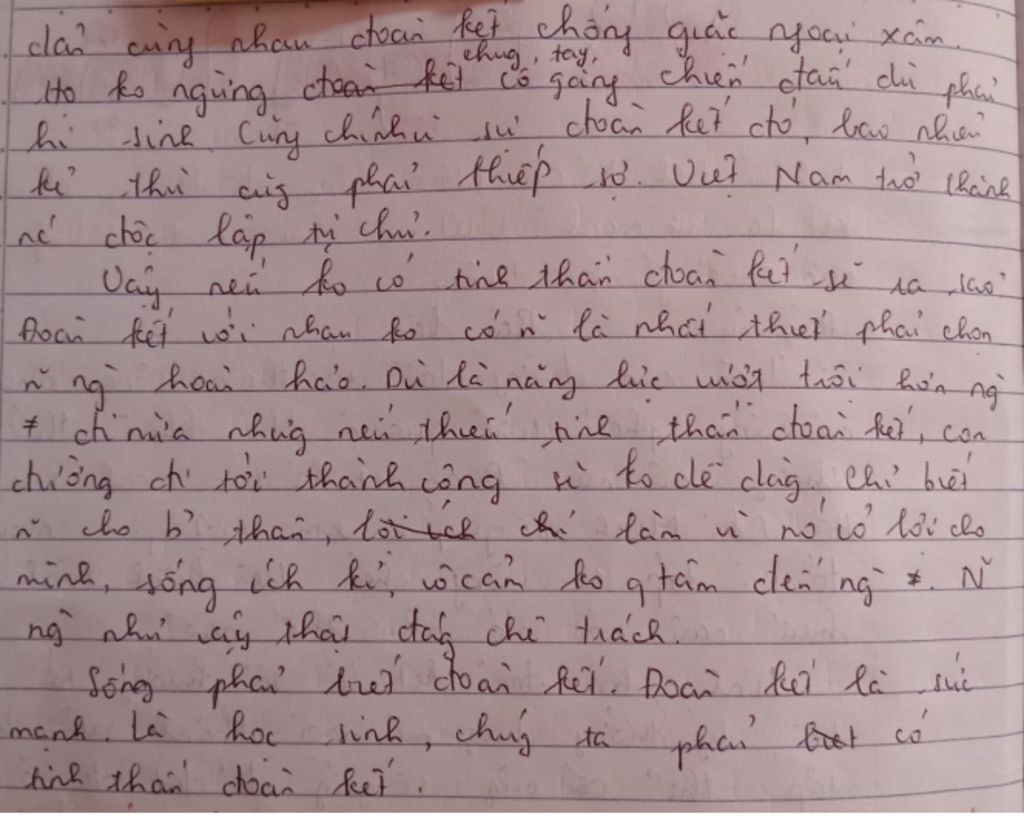 dân cùng nhau đoàn kết chống giặc ngoại xâm.
Họ ko ngừng đoàn kết chug tay, cố gắng chiến đấu dù phải
hi sinh. Cũng chính vì sự đoàn kết đó, bao nhiêu
kẻ thù cũg phải khiếp sợ. Việt Nam trở thành
nc' độc lập tự chủ.
Vậy nếu ko có tinh thần đoàn kết sẽ ra sao?
Đoàn kết với nhau ko có n~ là nhất thiết phải chọn
n~ ng` hoàn hảo. Dù là năng lực vượt trội hơn ng
≠ đi nữa nhưg nếu thiếu tinh thần đoàn kết, con
đường đi tới thành công sẽ ko dễ dàg, chỉ biết
n~ cho b? thân, lợi ích chỉ làm vì nó có lợi cho
mình, sống ích kỉ, vô cảm ko q tâm đến ng` ≠. N~
ng` như vậy thật đág chê trách.
Sống phải biết đoàn kết. Đoàn kết là sức
mạnh. Là học sinh, chúg ta phải biết có
tinh thần đoàn kết.